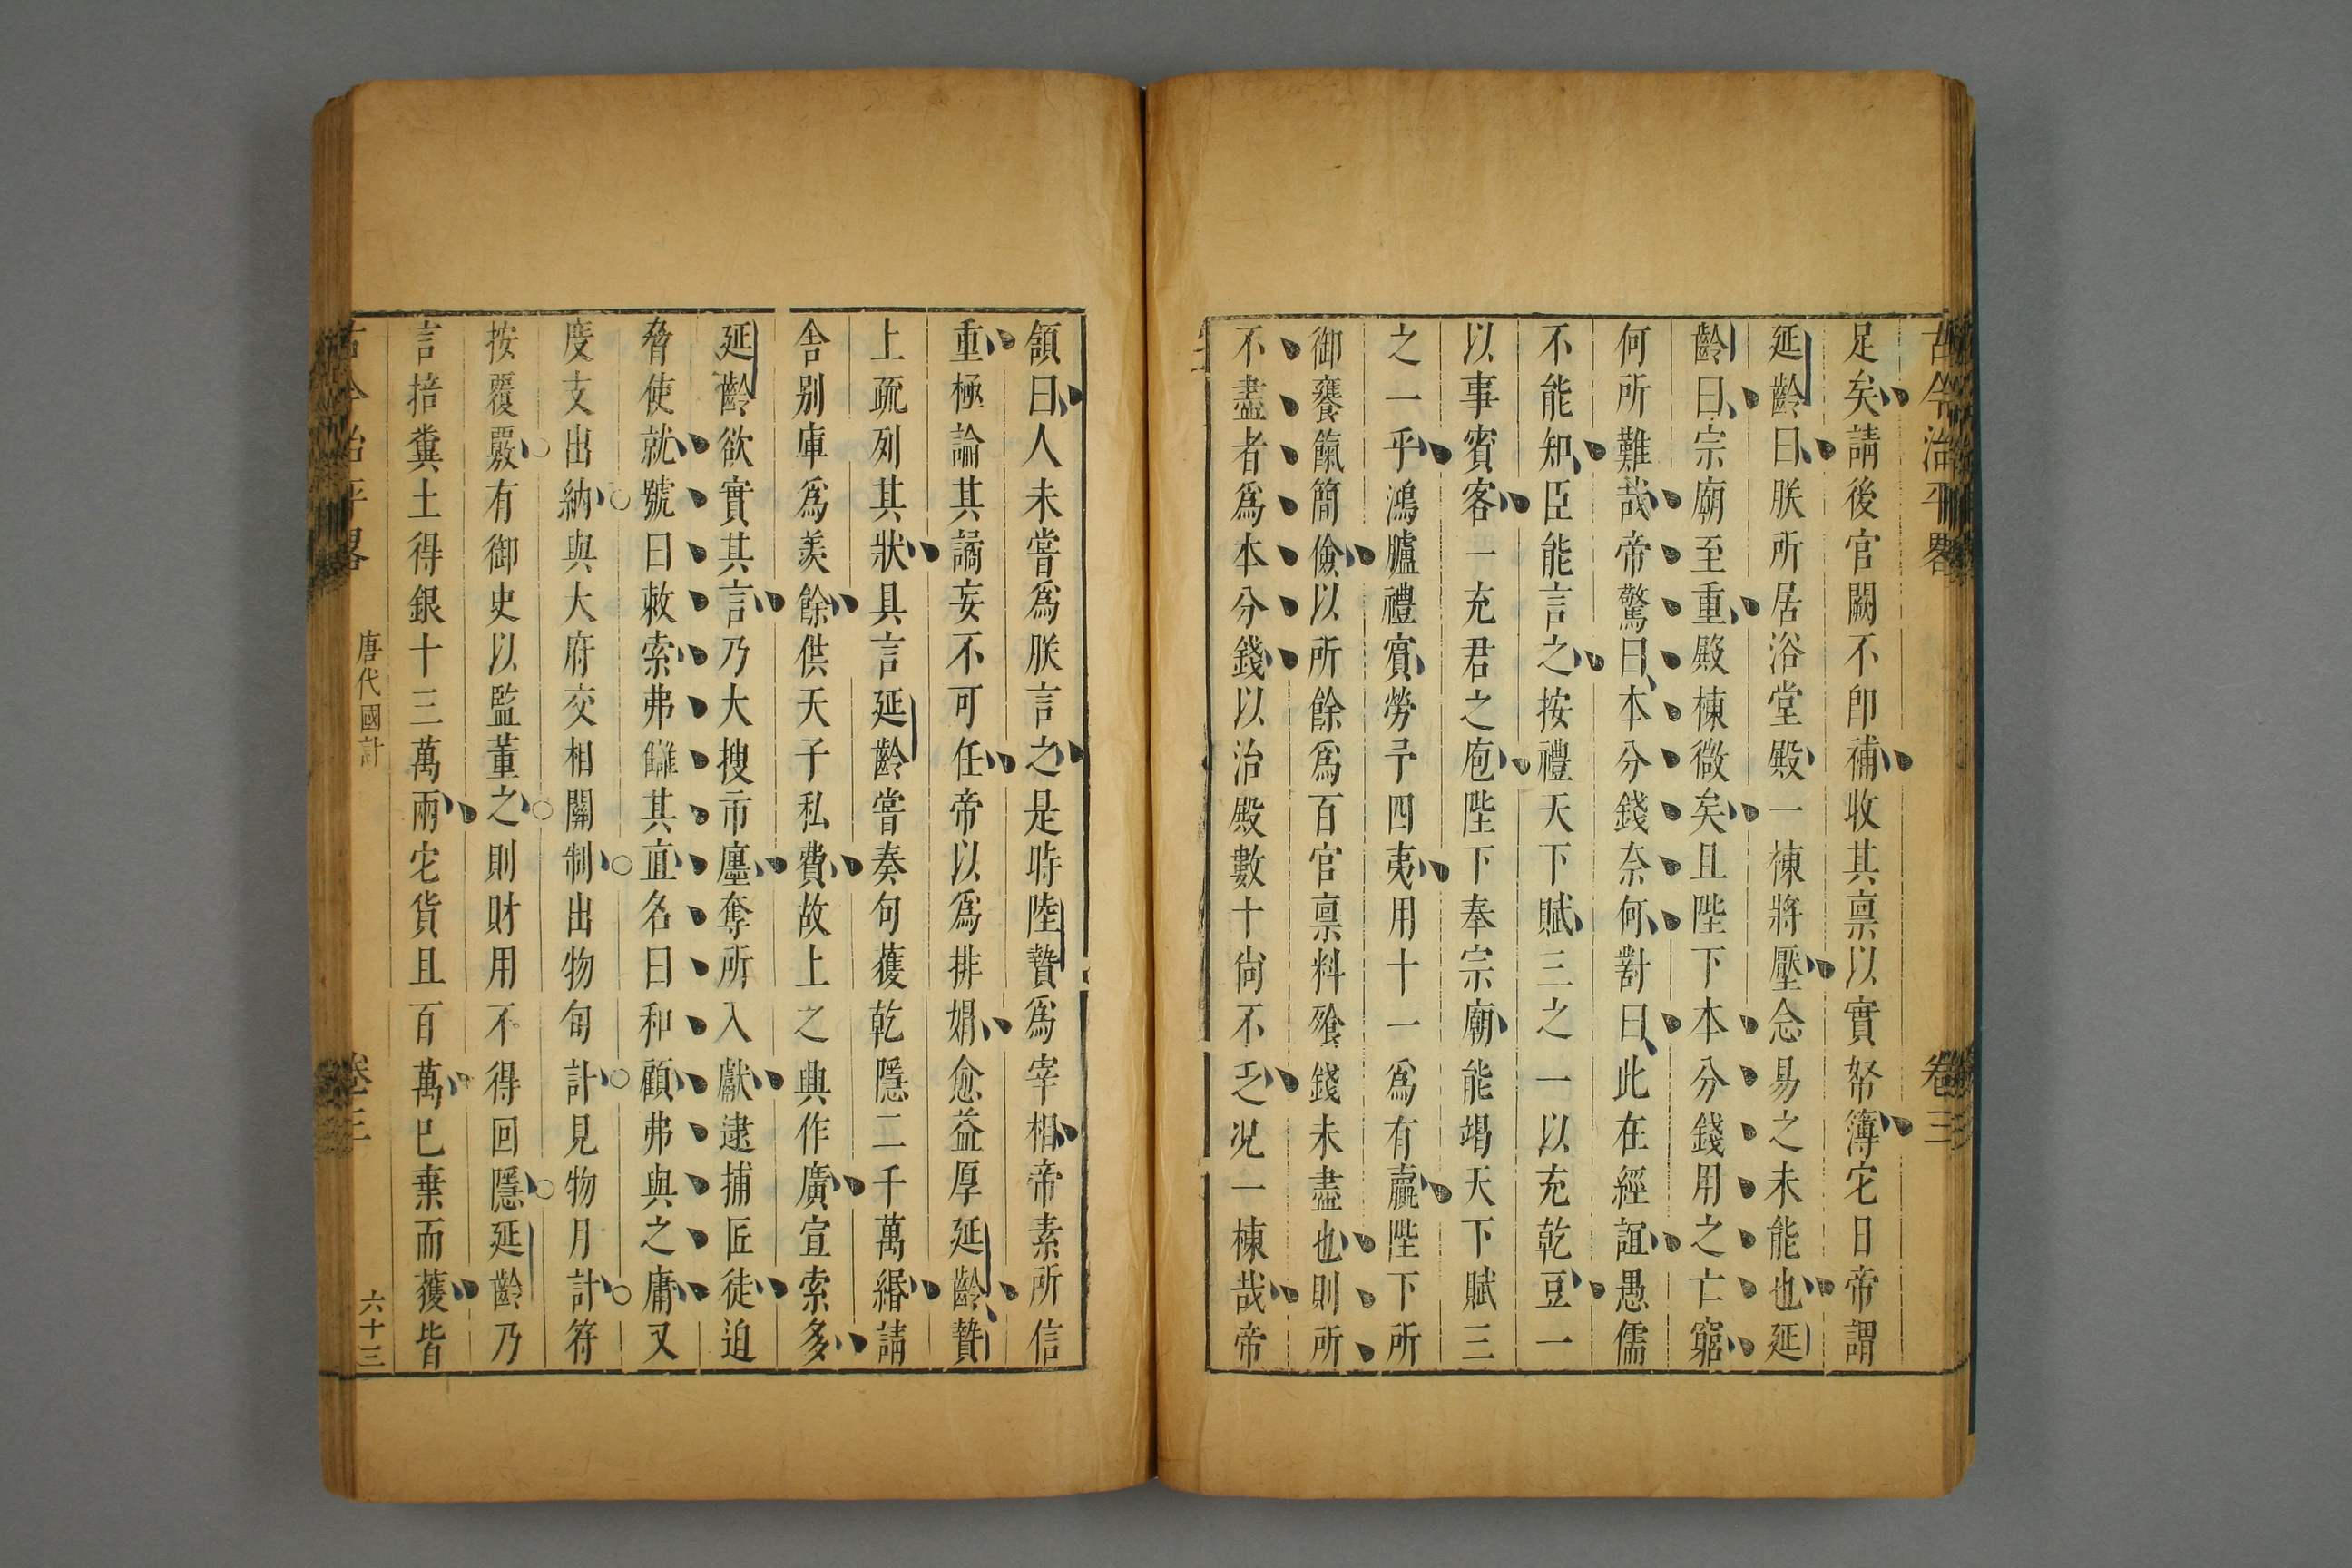 古今治平畧 卷三
足矣請後官闕不卽補收其禀以實帑簿它日帝謂
延齡曰朕所居浴堂殿一棟將壓念易之未能也延
齡曰宗廟至重殿棟微矣且陛下本分錢用之亡窮
何所難哉帝驚曰本分錢奈何對曰此在經誼愚儒
不能知臣能言之按禮天下賦三之一以充乾豆一
以事賓客一充君之庖陛下奉宗廟能竭天下賦三
之一乎鴻臚禮賓勞予四夷用十一爲有羸陛下所
御饔餼簡儉以所餘爲百官禀料飱錢未盡也則所
不盡者爲本分錢以治殿數十尙不乏况一棟哉帝
頷曰人未嘗爲朕言之是時陸贄爲宰相帝素所信
重極論其譎妄不可任帝以爲排媢愈益厚延齡贄
上疏列其狀具言延齡嘗奏句獲乾隱二千萬緡請
舎别庫爲羨餘供天子私費故上之興作廣宣索多
延齡欲實其言乃大搜市廛奪所入獻逮捕匠徒迫
脅使就號曰敕索弗讎其直名曰和顧弗與之庸又
度支出納與大府交相關制出物旬計見物月計符
按覆覈有御史以監董之則財用不得回隱延齡乃
言掊糞土得銀十三萬兩它貨且百萬已棄而獲皆
古今治平畧 唐代國計 卷三 六十三